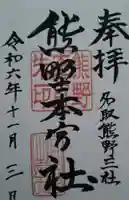 奉拝
名取熊野三社
熊野本宮社
令和六年十一月三日